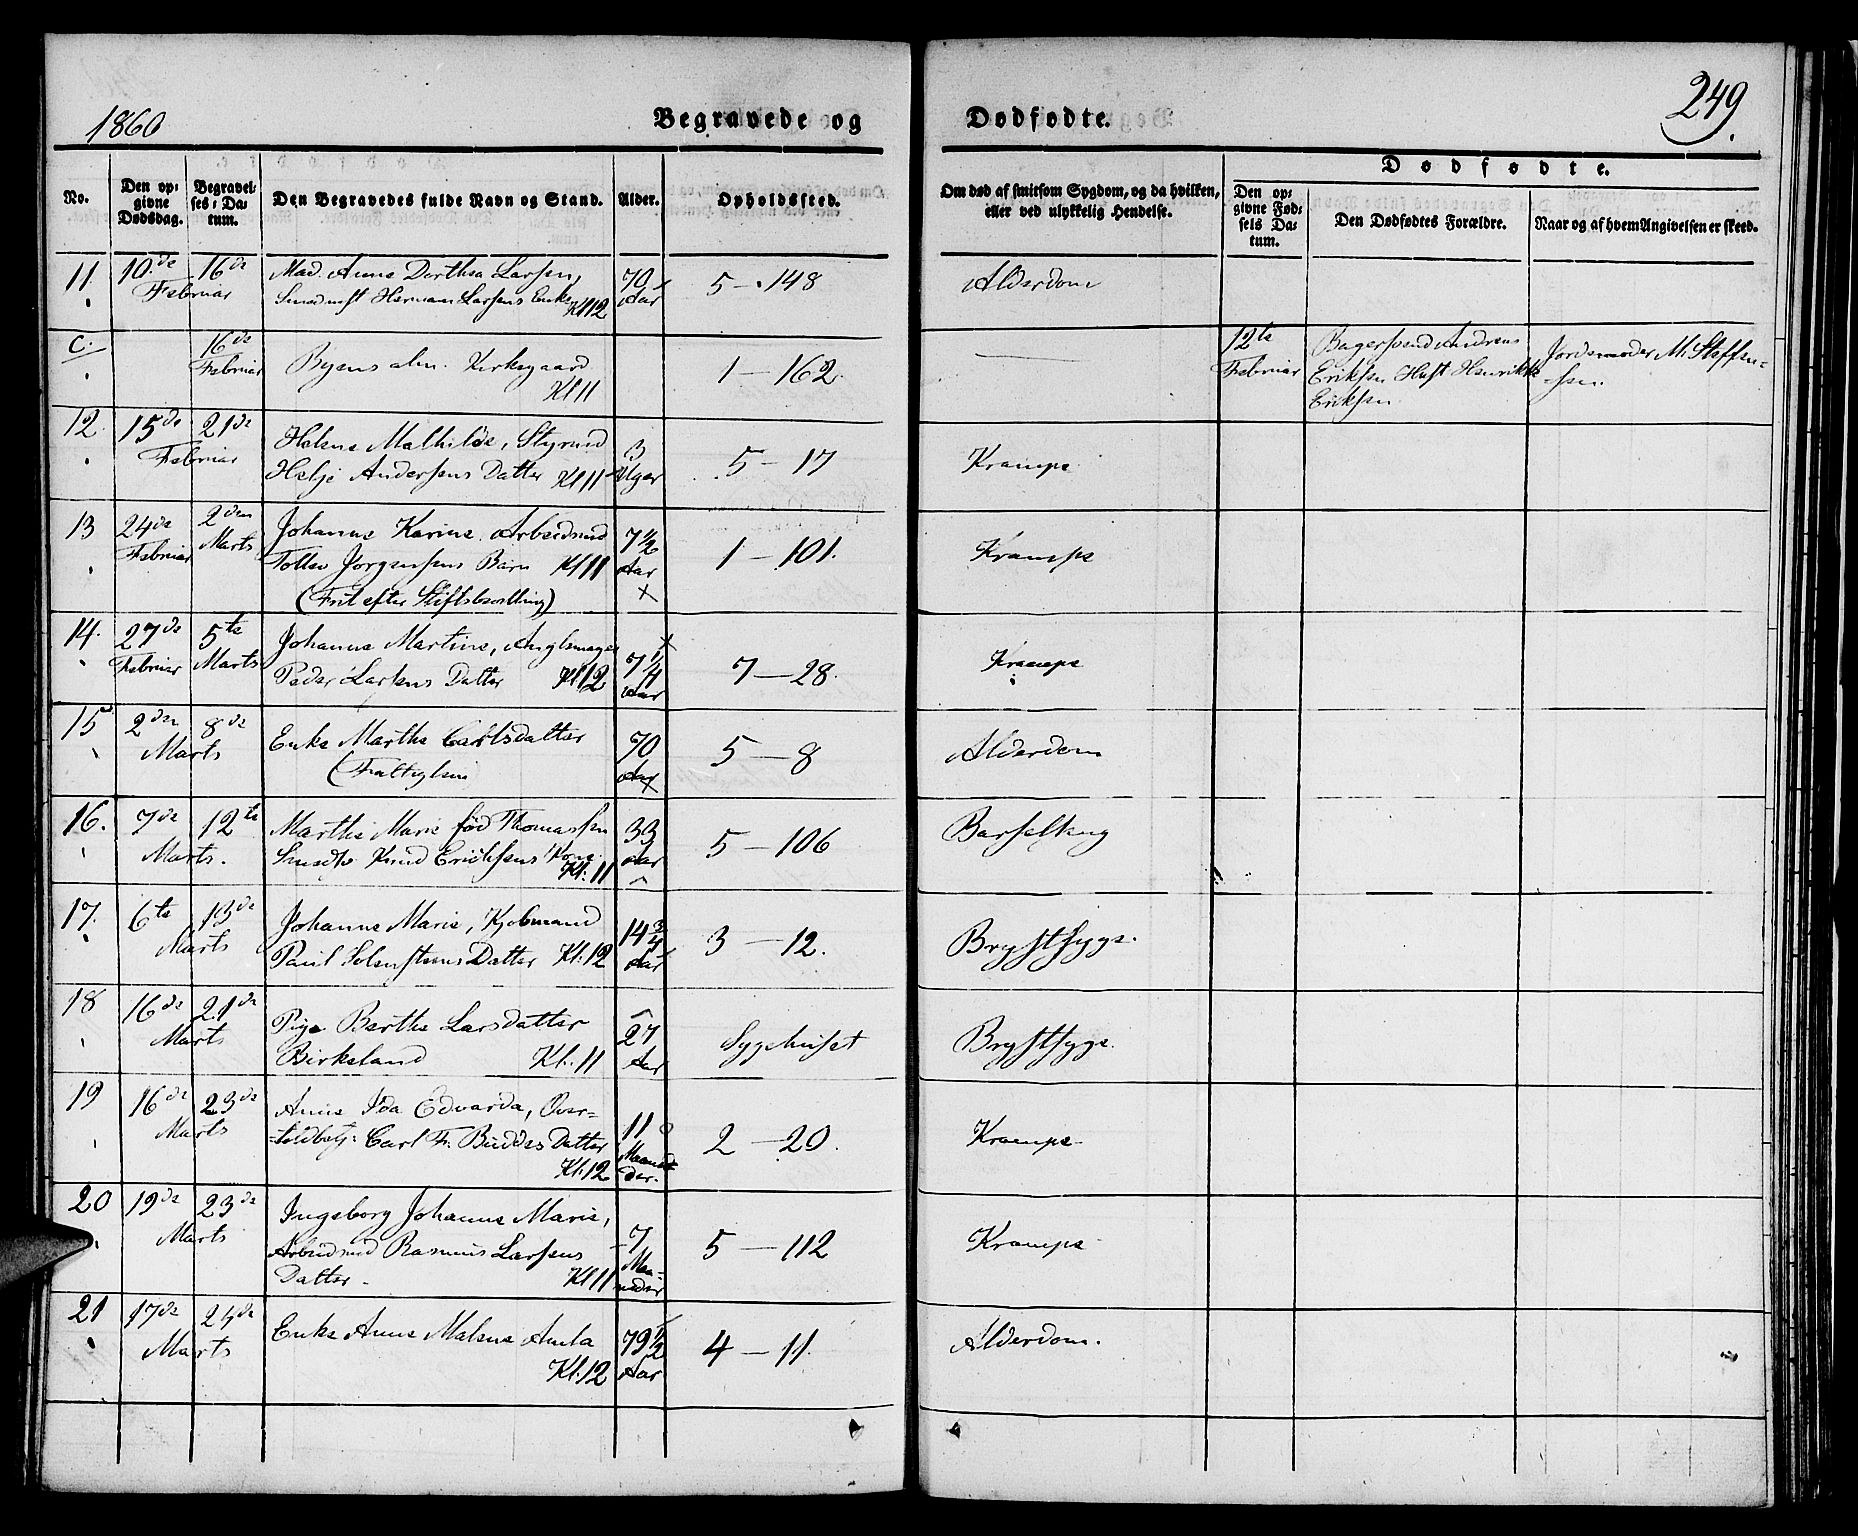 1860
Begravede og
Dødfødte.
249.
No.
Den opgivne Dødsdag.
Begravelses-Datum.
Den Begravedes fulde Navn og Stand.
Alder.
Opholdssted.
Om død af smitsom Sygdom, og da hvilken, eller ved ulykkelig Hendelse.
Dødfødte.
Den opgivne Fødsels Datum.
Den Dødfødtes Forældre.
Naar og af hvem Angivelsen er skeed.
11. 10de 16de Mad. Anne Dorthea Larsen, 70 5 - 148 Alderdom
Februar Herman Larsens Enke Kl 12 Aar
C. 16de Byens alm. Kirkegaard 1 - 162. 12te Bagersvend Andreas Jordemoder M. Steffen-
Februar Kl 11 Februar Eriksen Hust Henrikke -sen.
Eriksen
12. 15de 21de Helene Mathilde, Styrmd 3 5 - 17 Krampe
Februar Helje Andersens Datter Kl 11 Uger
13 24de 2den Johanne Karine. Arbeidsmd 7 1/2 1 - 101. Krampe
Februar Marts Tollev Jørgensens Barn Kl 11 Aar
(Frit efter
14. 27de 5te Johanne Martine, 7 1/4 7 - 28. Krampe
Februar Marts Peder Larsens Datter Kl 12 Aar
15 2den 8de Enke Marthe Carlsdatter 70 5 - 8 Alderdom
Marts (Fattiglem Aar
16. 7de 12te Marthe Marie fød Thomassen 33 5 - 106 Barselseng
Marts. Knud Erichsens Kone. Kl. 11 Aar
17. 6te 13de Johanne Marie, Kjøbmand 14 3/4 3 - 12. Brystsyge.
Marts Paul Datter Kl. 12 Aar
18 16de 21de Pige Berthe Larsdatter 27 Sygehuset Brystsyge.
Marts Birkeland Kl. 11 Aar
19 16de 23de Anne Ida Edvarda, Over- 11 2 - 20. Krampe
Marts -toldbetj: Carl Fr. Buddes Datter Maane-
Kl. 12 der.
20 19de 23de Ingeborg Johanne Marie, 7 5 - 112 Krampe
Marts Arbeidsmd Rasmus Larsens Maa-
Datter. Kl 11 neder
21 17de 24de Enke Anne Malene Amla 79 1/2 4 - 11. Alderdom.
Marts Kl. 12 Aar